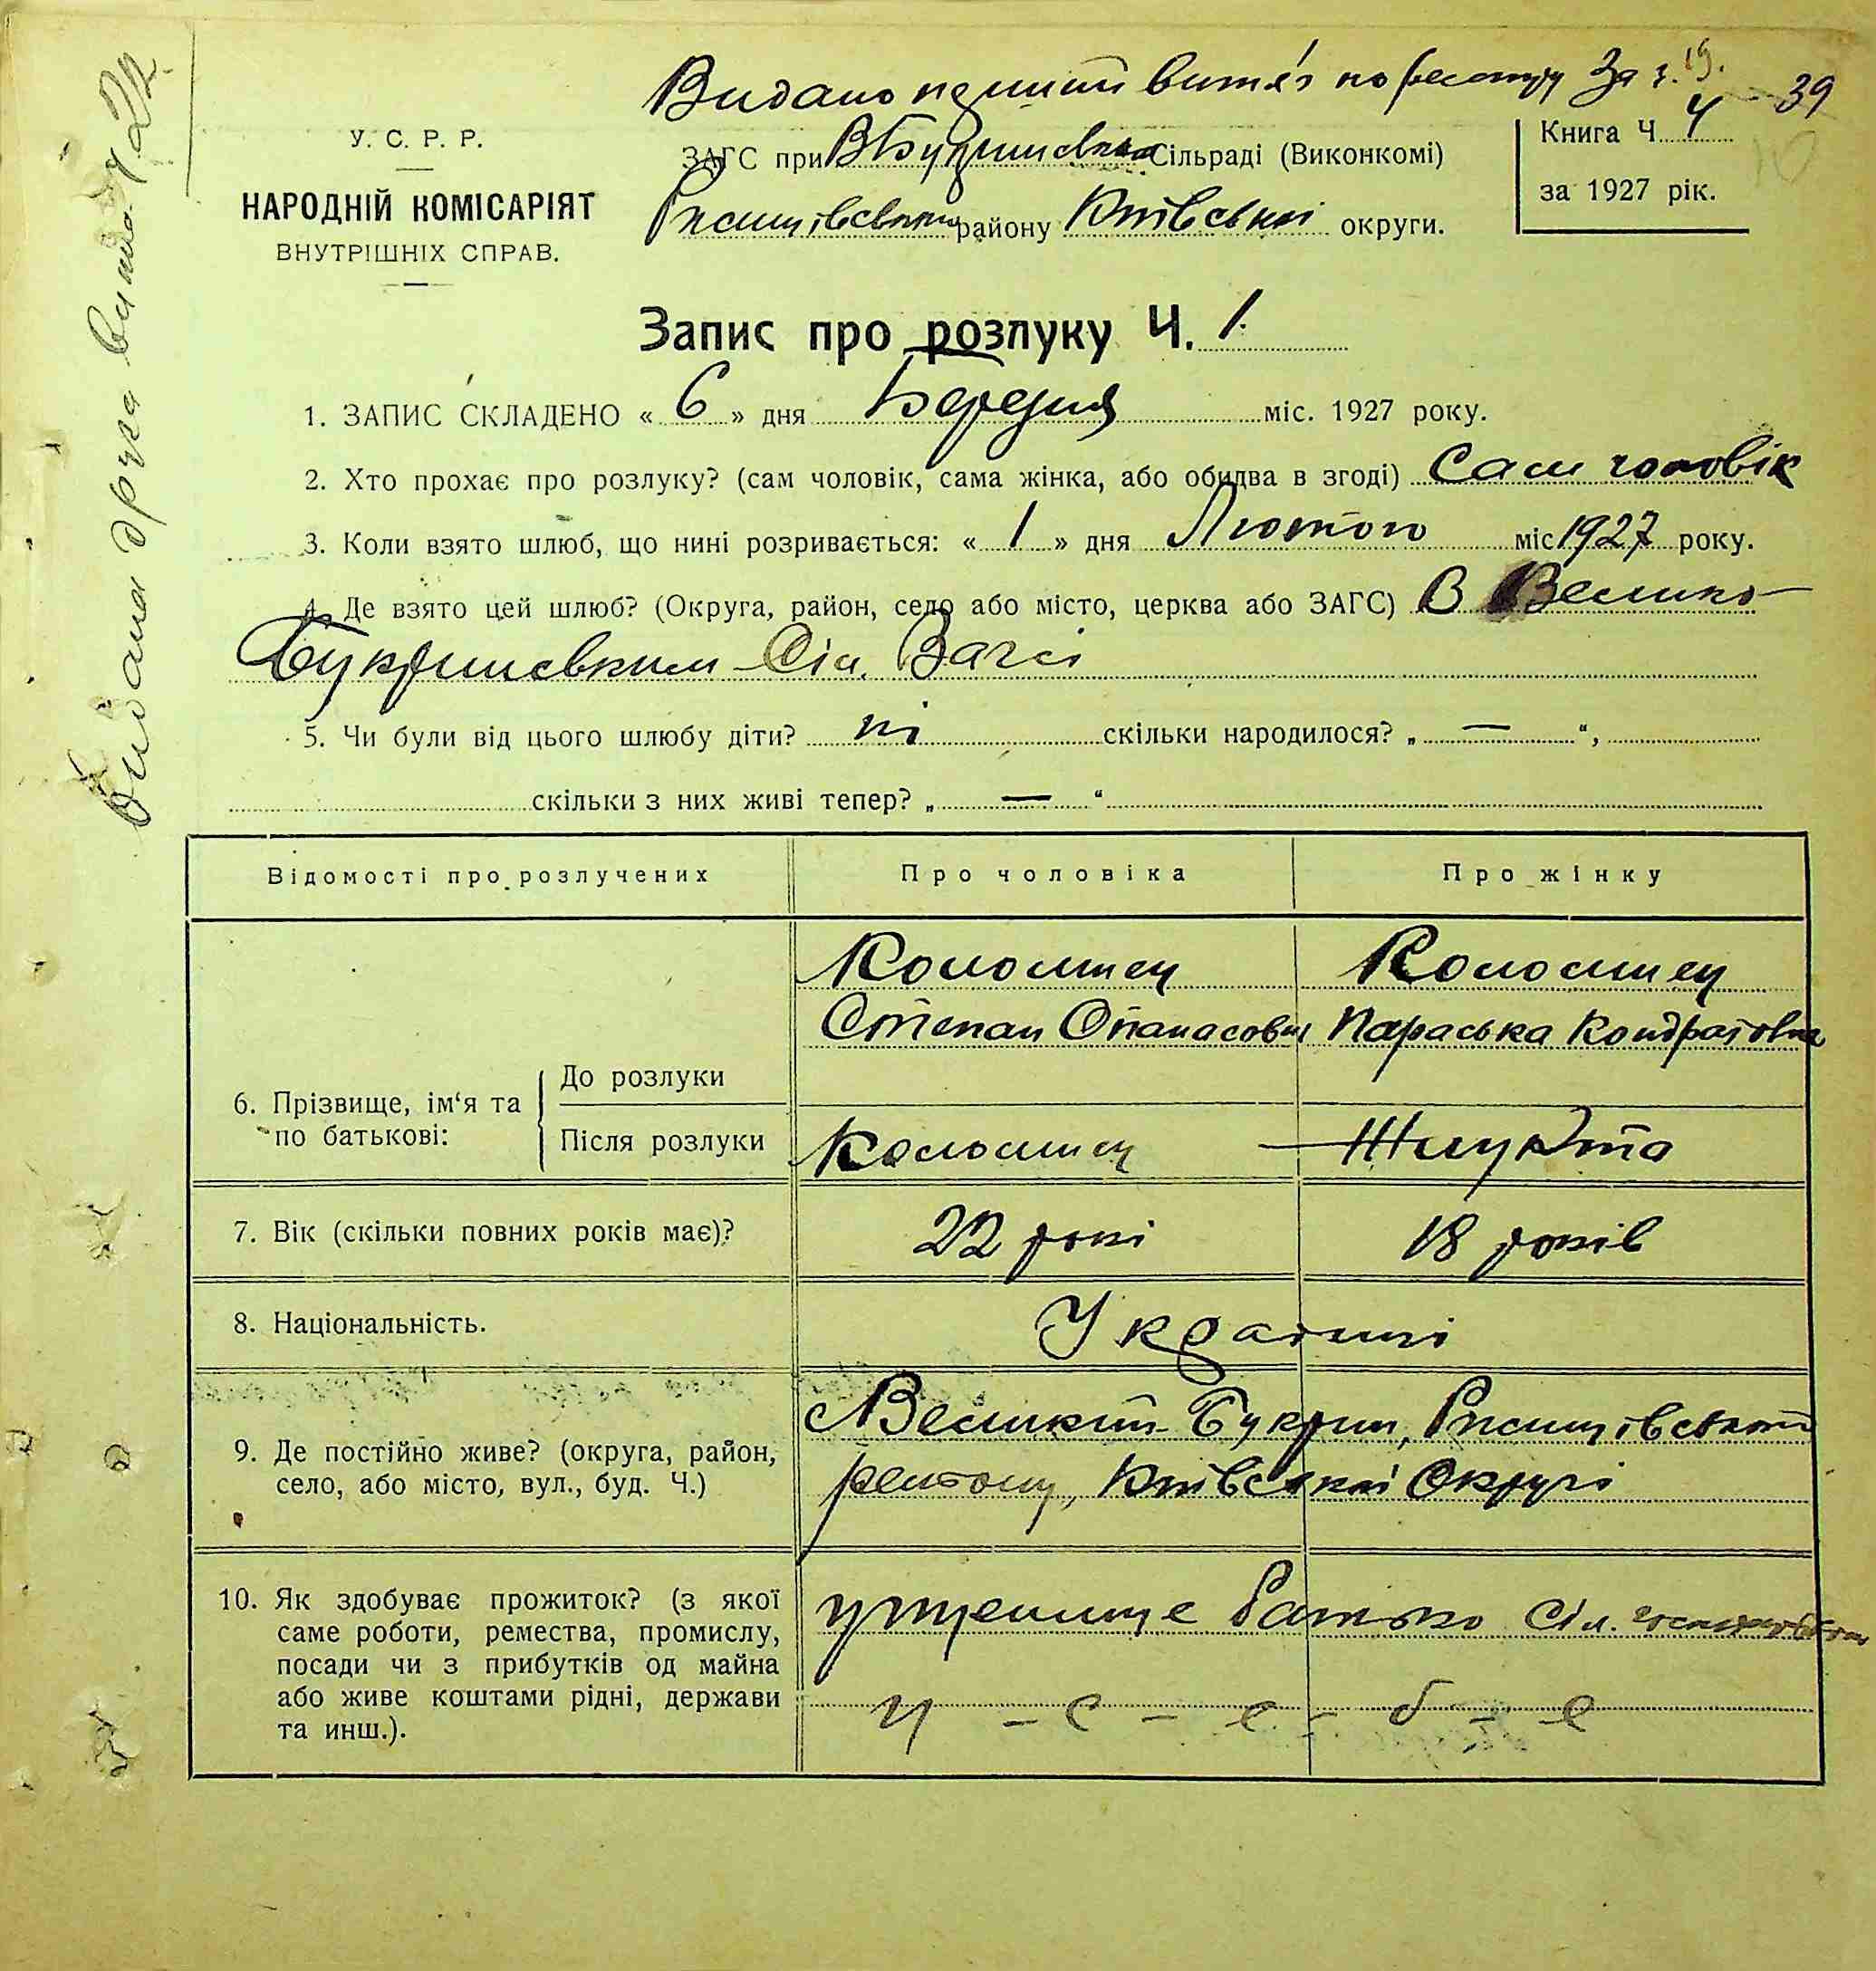 Видано витяг по реєстру За ч. 19.
39
У. С. Р. Р.
НАРОДНІЙ КОМІСАРІЯТ
ВНУТРІШНІХ СПРАВ.
ЗАГС при В Букринській Сільраді (Виконкомі)
Ржищівського району Київської округи.
Книга Ч. 4
за 1927 рік.
Видана друга виписка ч 22
Запис про розлуку Ч. 1.
1. ЗАПИС СКЛАДЕНО « 6 » дня Березня міс. 1927 року.
2. Хто прохає про розлуку? (сам чоловік, сама жінка, або обидва в згоді) Сам чоловік
3. Коли взято шлюб, що нині розривається: « 1 » дня Лютого міс 1927 року.
4. Де взято цей шлюб? (Округа, район, село або місто, церква або ЗАГС) В Велико-
Букринським Сіл. Загсі
5. Чи були від цього шлюбу діти? ні скільки народилося? „ — “,
скільки з них живі тепер? „ — “
Відомості про розлучених Про чоловіка Про жінку
6. Прізвище, ім‘я та по батькові:
До розлуки
Коломиец Коломиец
Степан Опанасович Параська Кондратовна
Після розлуки Коломиец
7. Вік (скільки повних років має)? 22 роки 18 років
8. Національність. Українці
9. Де постійно живе? (округа, район,
село, або місто, вул., буд. Ч.)
Великий-Букрин, Ржищівського
району, Київської Округи
10. Як здобуває прожиток? (з якої
саме роботи, ремества, промислу,
посади чи з прибутків од майна
або живе коштами рідні, держави
та инш.).
утримує батько Сіл.
у - с е - б - е